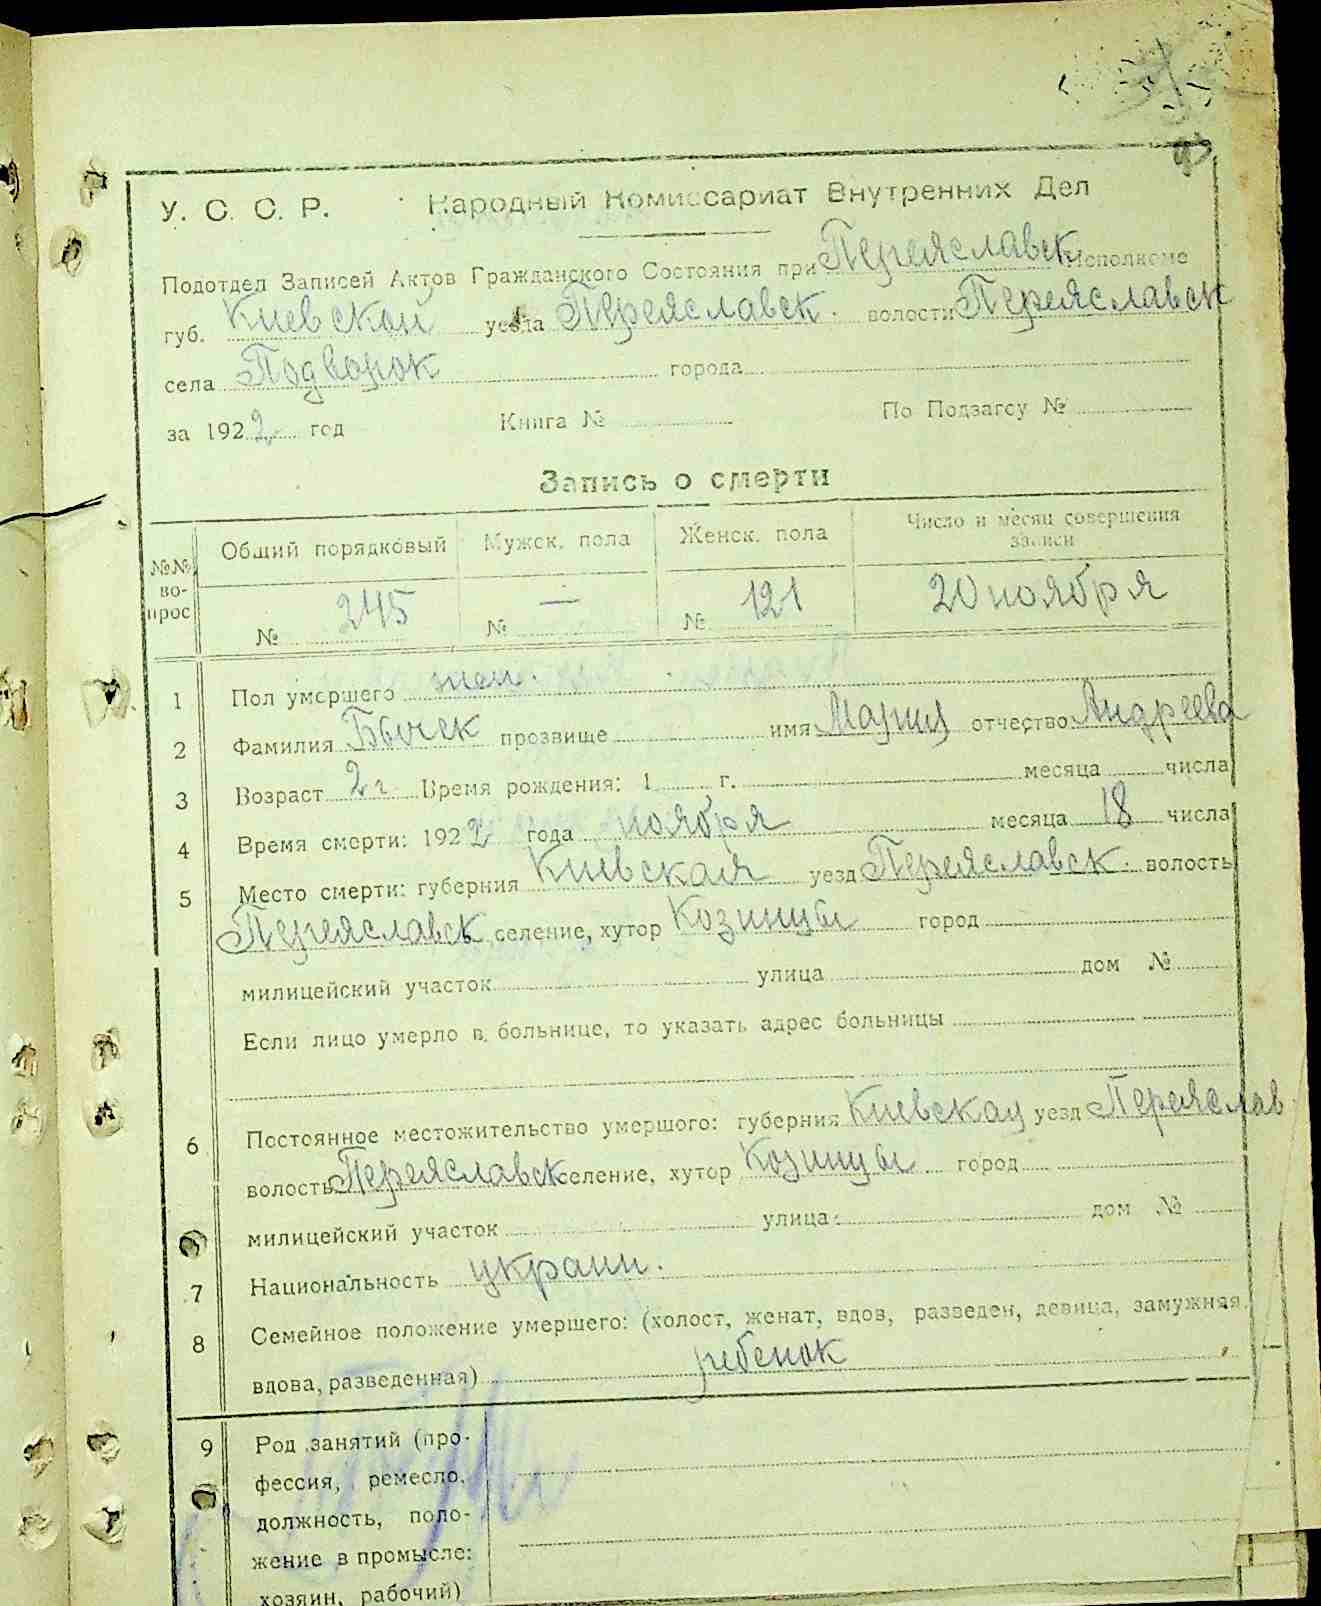 У. С. С. Р. Народный Комиссариат Внутренних Дел
Подотдел Записей Актов Гражданского Состояния при Переяславск Исполкоме
губ. Киевской уезда Переяславск. волости Переяславск
села Подворок города
за 1922 год Книга № По Подзагсу №
Запись о смерти
№№ во-прос Общий порядковый Мужск. пола Женск. пола Число и месяц совершения записи
№ 245 № — № 121 20 ноября
1 Пол умершего жен.
2 Фамилия Бычек прозвище имя Мария отчество Андреева
3 Возраст 2 г. Время рождения: 1 г. месяца числа
4 Время смерти: 1922 года ноября месяца 18 числа
5 Место смерти: губерния Киевская уезд Переяславск. волость
Переяславск селение, хутор Козинцы город
милицейский участок улица дом №
Если лицо умерло в больнице, то указать адрес больницы
6 Постоянное местожительство умершого: губерния Киевская уезд Переяслав
волость Переяславск селение, хутор Козинцы город
милицейский участок улица: дом №
7 Национальность украин.
8 Семейное положение умершего: (холост, женат, вдов, разведен, девица, замужняя,
вдова, разведенная) ребенок
9 Род занятий (про-
фессия, ремесло,
должность, поло-
жение в промысле:
хозяин, рабочий)